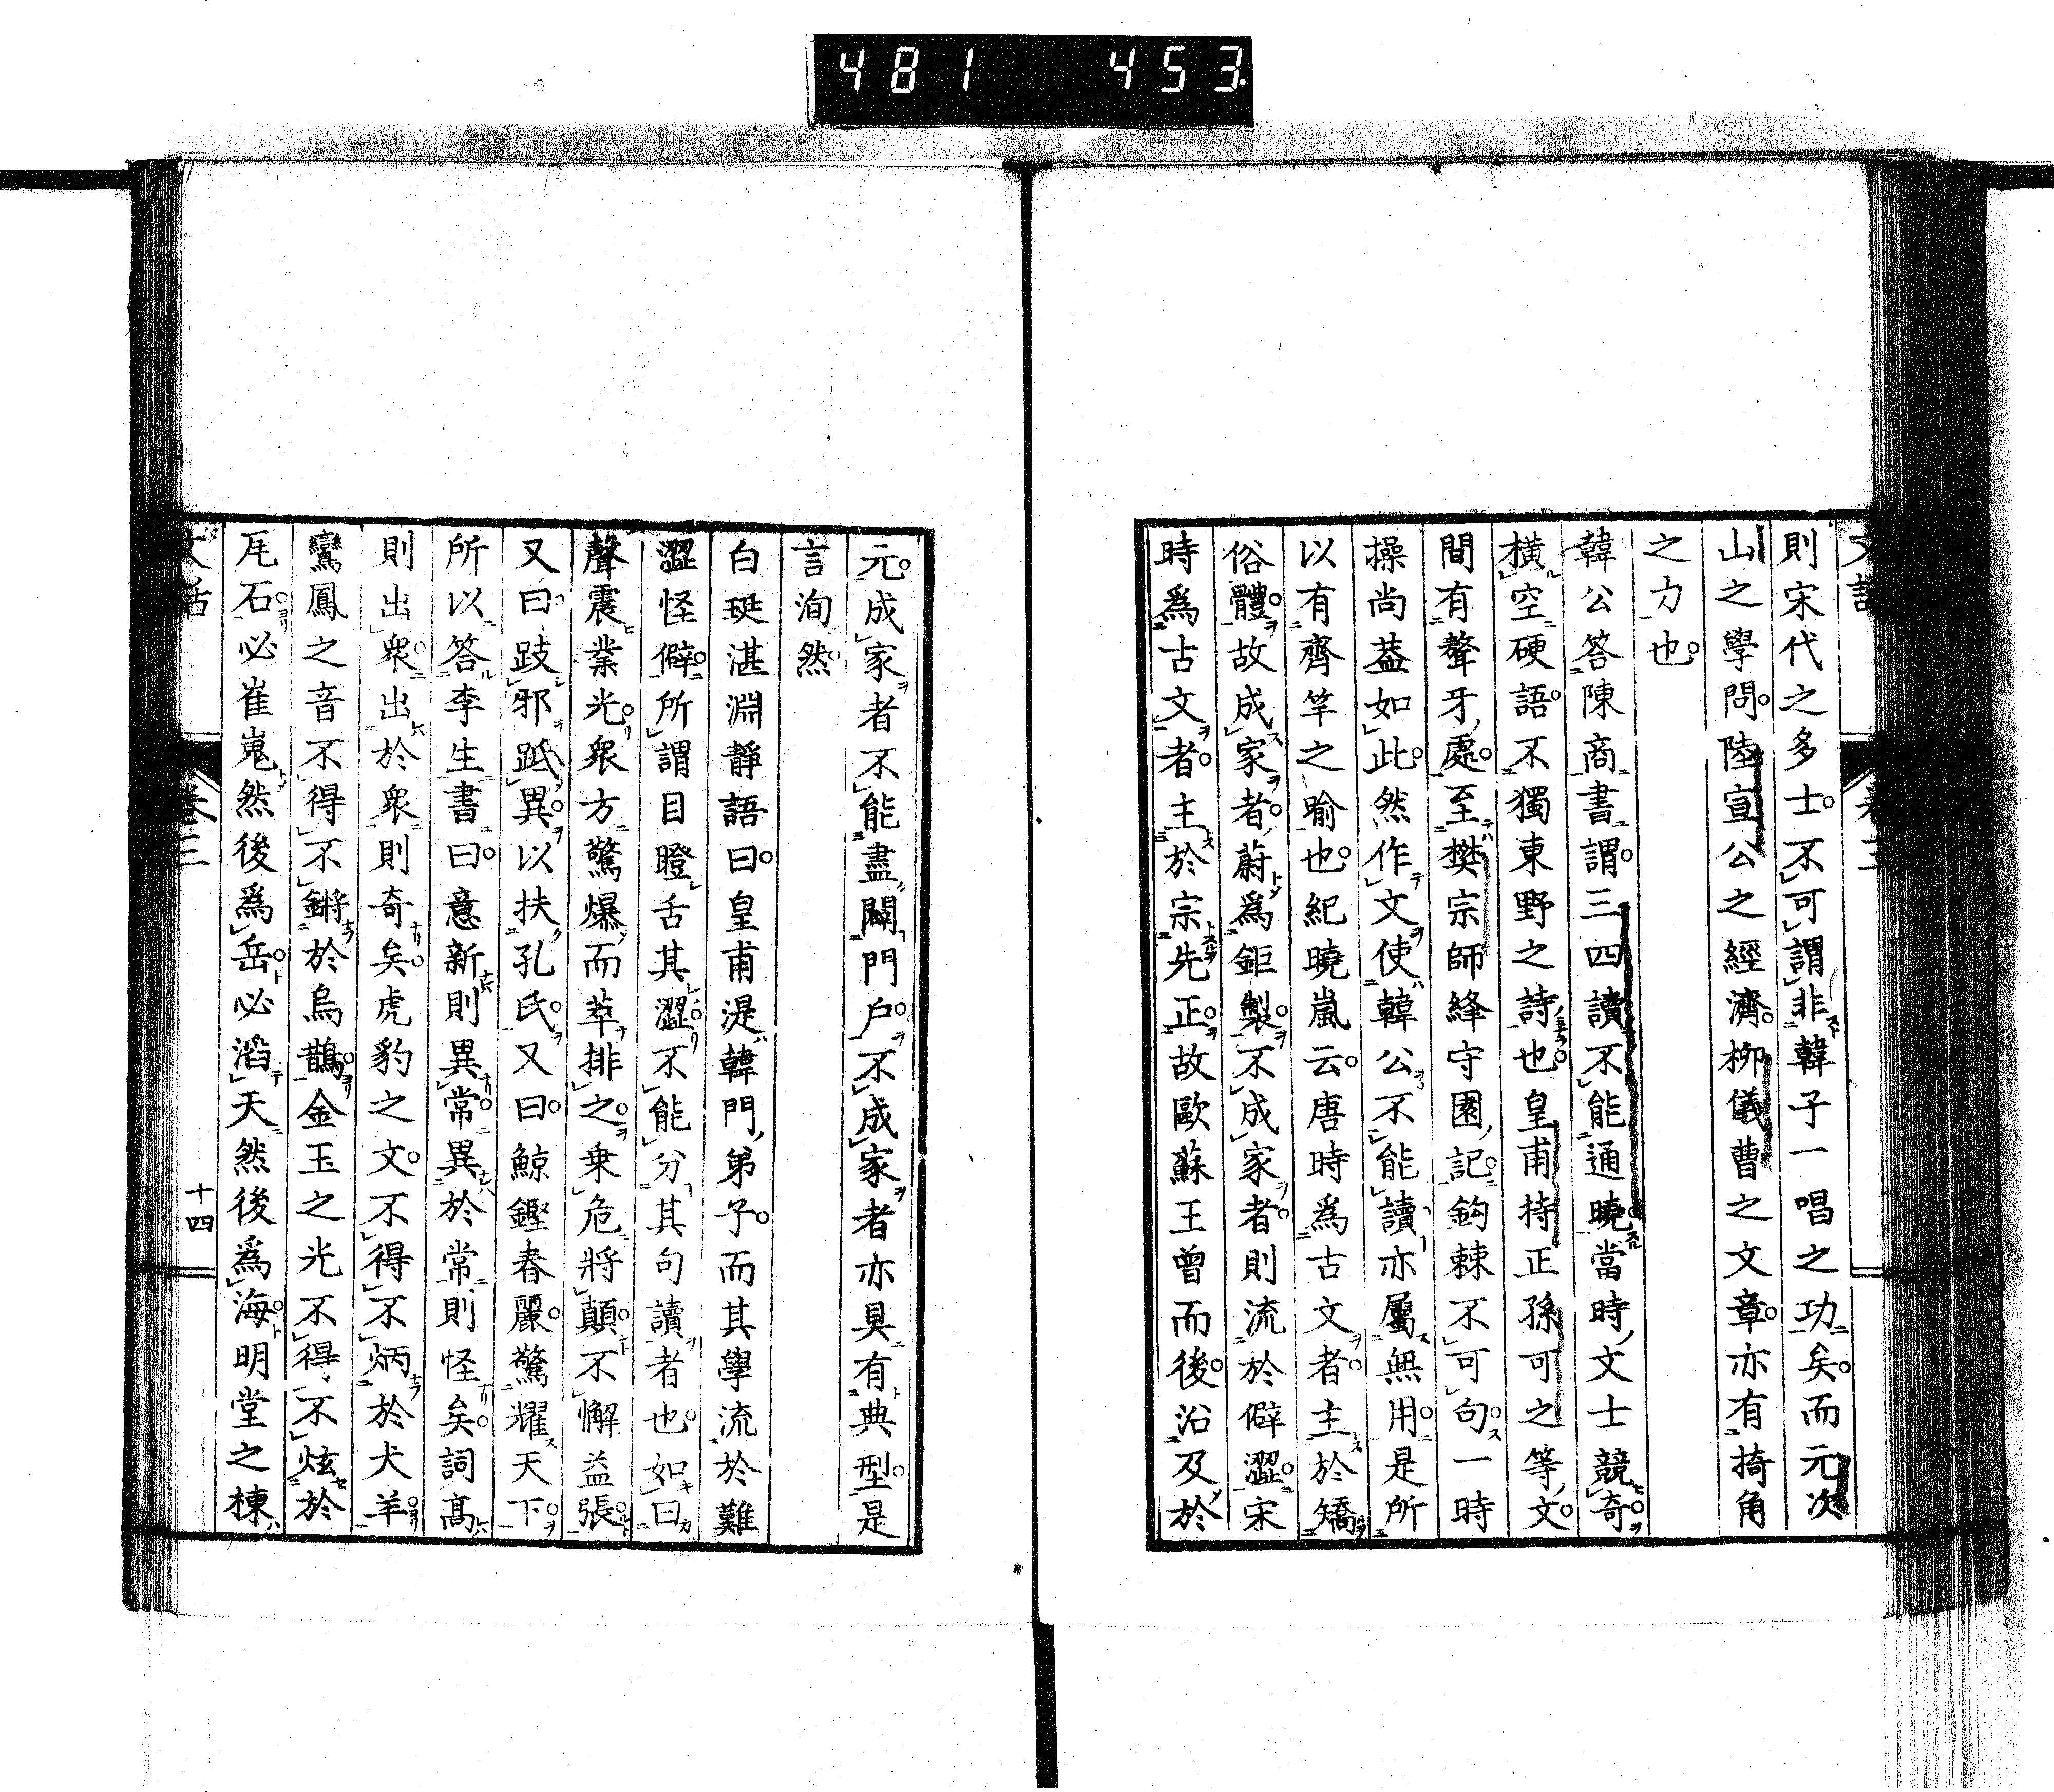 481 453
則宋代之多士不可謂非韓子一唱之功矣而元次
山之學問陸宣公之經濟柳儀曹之文章亦有掎角
之力也
韓公答陳商書謂三四讀不能通曉當時文士競奇
橫空硬語不獨東野之詩也皇甫持正孫可之等文
間有聱牙處至樊宗師絳守園記鈎棘不可句一時
操尚葢如此然作文使韓公不能讀亦屬無用是所
以有齊竽之喻也紀曉嵐云唐時爲古文者主於矯
俗體故成家者蔚爲鉅製不成家者則流於僻澀宋
時爲古文者主於宗先正故歐蘇王曾而後沿及於
元成家者不能盡闢門戶不成家者亦具有典型是
言洵然
白珽湛淵靜語曰皇甫湜韓門弟子而其學流於難
澀怪僻所謂目瞪舌其澀不能分其句讀者也如曰
聲震業光衆方驚爆而萃排之乗危將顛不懈益張
又曰跂邪觝異以扶孔氏又曰鯨鏗春麗驚耀天下
所以答李生書曰意新則異常異於常則怪矣詞髙
則出衆出於衆則奇矣虎豹之文不得不炳於犬羊
鸞鳳之音不得不鏘於烏鵲金玉之光不得不炫於
瓦石必崔嵬然後爲岳必滔天然後爲海明堂之棟
文話 卷三 十四